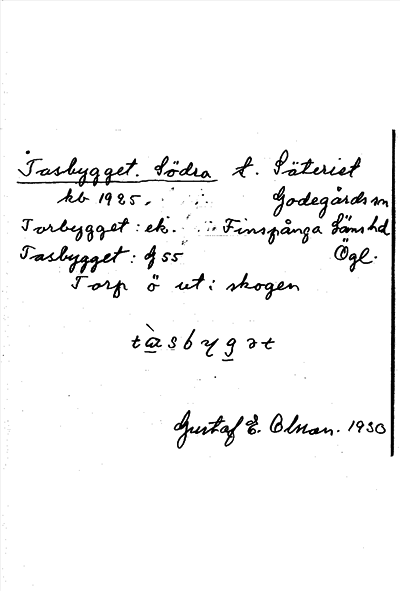 Tasbygget. Södra t. Säteriet
kb 1925. Godegårds sn
Torbygget: ek. Finspånga läns hd
Tasbygget: G 55 Ögl.
Torp ö ut i skogen
tàsbygət
Gustaf E. Olsson. 1930